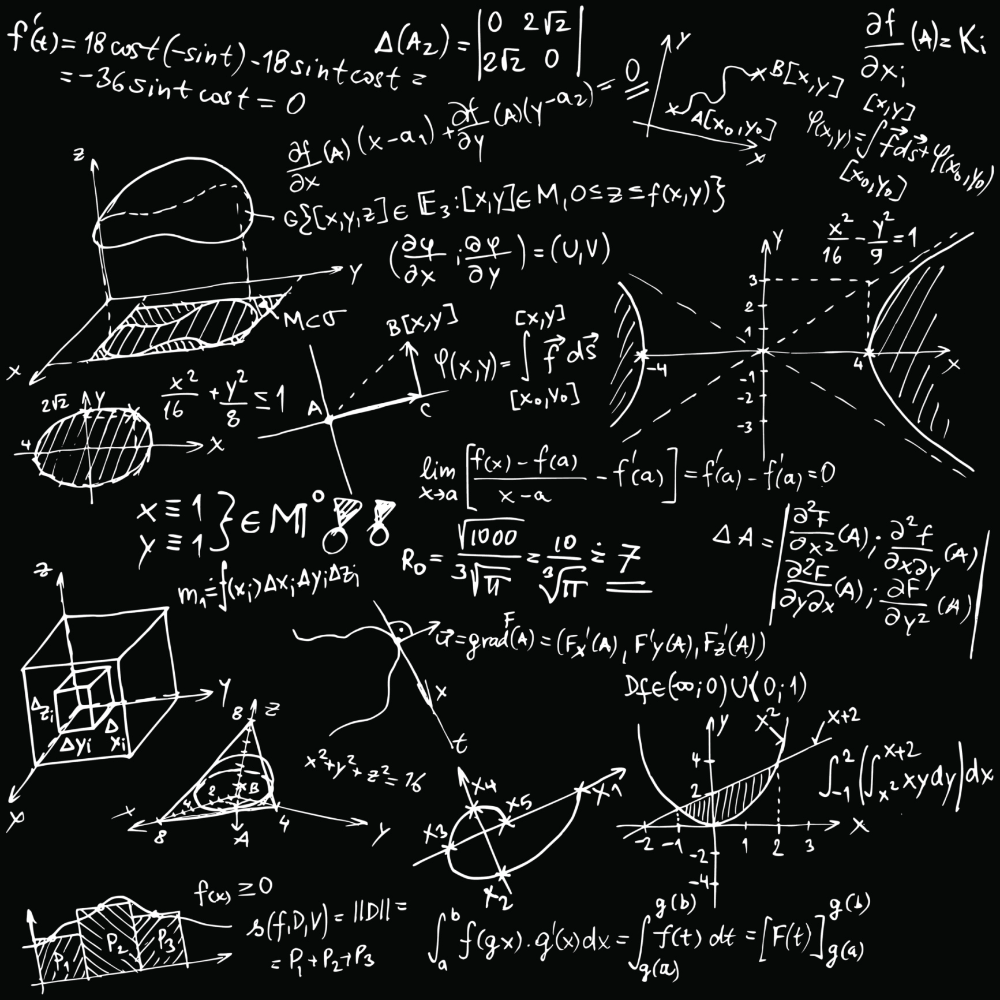 f'(t) = 18 cos t (-sin t) - 18 sin t cos t =
= -36 sin t cos t = 0
Δ(A₂) = |0 2√2|
|2√2 0|
Y
B[x,y]
A[x₀,y₀]
X
∂f/∂xᵢ (A) = Kᵢ
∂f/∂x (A) (x-a₁) + ∂f/∂y (A)(y-a₂) = 0
[x,y]
φ(x,y) = ∫ f⃗ ds⃗ + φ(x₀,y₀)
[x₀,y₀]
z
G{[x,y,z] ∈ E₃: [x,y] ∈ M, 0 ≤ z ≤ f(x,y)}
Y
X
M⊂σ
(∂φ/∂x ; ∂φ/∂y) = (U,V)
x²/16 - y²/9 = 1
Y
3
2
1
-4
4
X
-1
-2
-3
2√2 Y
4
X
x²/16 + y²/8 ≤ 1
B[x,y]
A
C
[x,y]
φ(x,y) = ∫ f⃗ ds⃗
[x₀,y₀]
lim x→a [(f(x) - f(a))/(x-a) - f'(a)] = f'(a) - f'(a) = 0
x ≡ 1
y ≡ 1 } ∈ M°!!
R₀ = √1000/3√π = 10/³√π ≐ 7
ΔA = |∂²F/∂x² (A); ∂²f/∂x∂y (A)|
|∂²F/∂y∂x (A); ∂F/∂y² (A)|
m₁ ≐ f(xᵢ)Δxᵢ Δyᵢ Δzᵢ
z
Y
X
Δzᵢ
Δyᵢ
Δxᵢ
u⃗ = grad F(A) = (Fx'(A), F'y(A), Fz'(A))
X
t
Df∈(∞;0)∪(0;1)
8 z
2
B
X
8
A
4
y
x²+y²+z² = 16
X4
X5
X1
X3
X2
y
x²
x+2
4
2
-2 -1 1 2 3
X
-2
-4
∫₋₁² (∫ₓ²ˣ⁺² xy dy) dx
f(x) ≥ 0
P₁ P₂ P₃
s(f,D,V) = ||D|| =
= P₁ + P₂ + P₃
∫ₐᵇ f(gx).g'(x)dx = ∫g(a)g(b) f(t) dt = [F(t)]g(a)g(b)